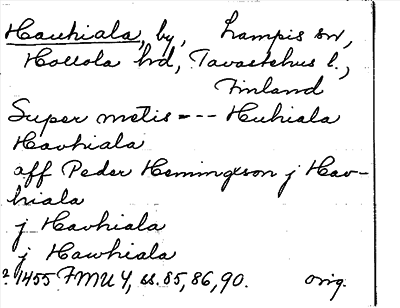 Hauhiala, by, Lampis sn,
Hollola hd, Tavastehus l.,
Finland
Super metis --- Huhiala
Havhiala
aff Peder Hemingxson j Hav-
hiala
j Havhiala
j Hawhiala
? 1455 FMU 4, ss. 85, 86, 90. orig.